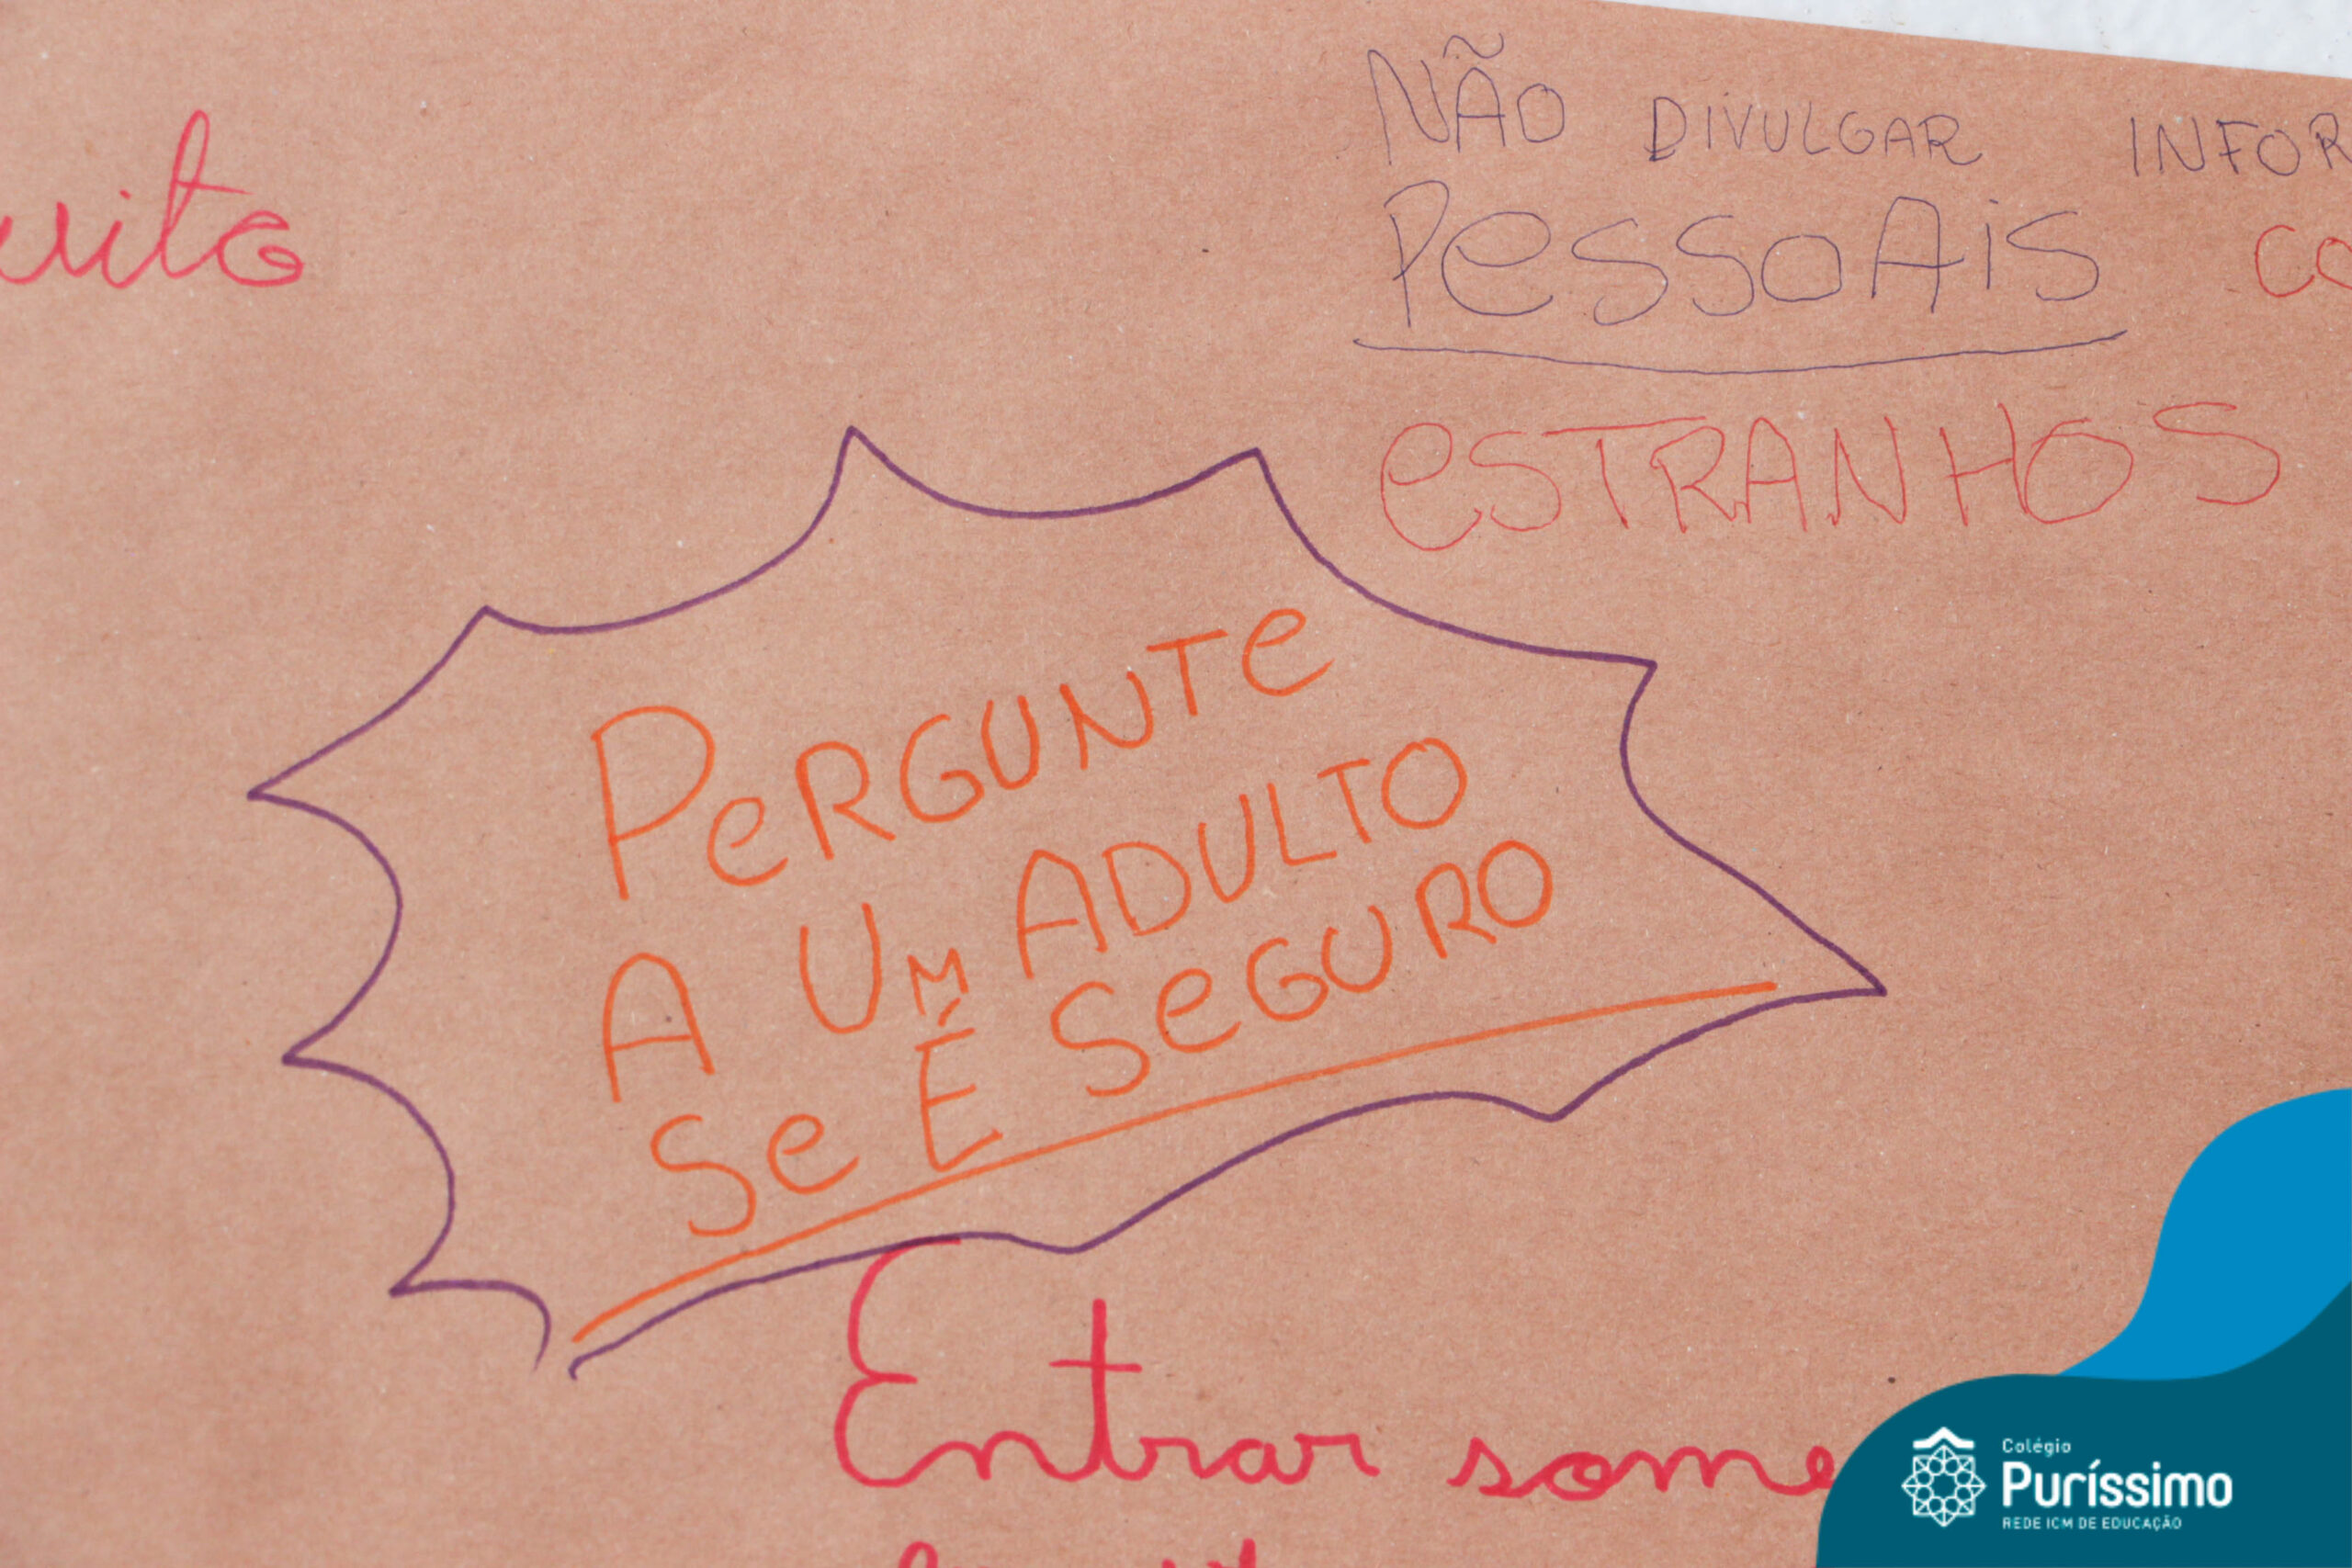 NÃO DIVULGAR INFOR
PESSOAIS CO
ESTRANHOS
PERGUNTE
A UM ADULTO
SE É SEGURO
Entrar some
Colégio
Puríssimo
REDE ICM DE EDUCAÇÃO